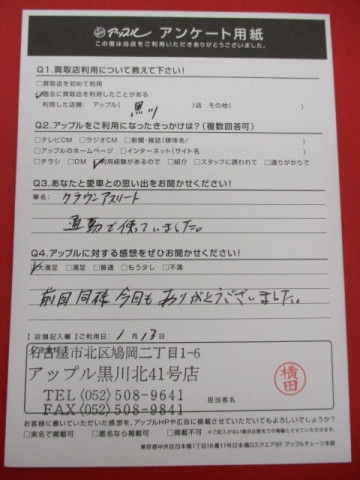 アップル アンケート用紙
この度は当店をご利用いただきありがとうございました。
Q1.買取店利用について教えて下さい!
□買取店を初めて利用
☑過去に買取店を利用したことがある
利用した店舗: アップル( 黒川 )店 その他( )
Q2.アップルをご利用になったきっかけは?(複数回答可)
□テレビCM □ラジオCM □新聞・雑誌(媒体名/ )
□アップルのホームページ □インターネット(サイト名 )
□チラシ □DM ☑利用経験があるので □紹介 □スタッフに誘われて □通りがかりで
Q3.あなたと愛車との思い出をお聞かせください!
車名: クラウンアスリート
通勤で使っていました。
Q4.アップルに対する感想をぜひお聞かせください!
☑大満足 □満足 □普通 □もう少し □不満
前回同様今回もありがとうございました。
【店舗記入欄】ご利用日: 1月13日
名古屋市北区鳩岡二丁目1-6
アップル黒川北41号店
TEL〈052〉508-9641
FAX〈052〉508-9841
担当者名
横田
お客様に書いていただいた感想を、アップルHPや広告に掲載させていただいてもよろしいでしょうか?
□実名で掲載可 □匿名なら掲載可 □掲載不可 ※ご記入がない場合は匿名での掲載とさせていただきます。
東京都中央区日本橋1丁目16番11号日本橋Dスクエア9F アップルチェーン本部